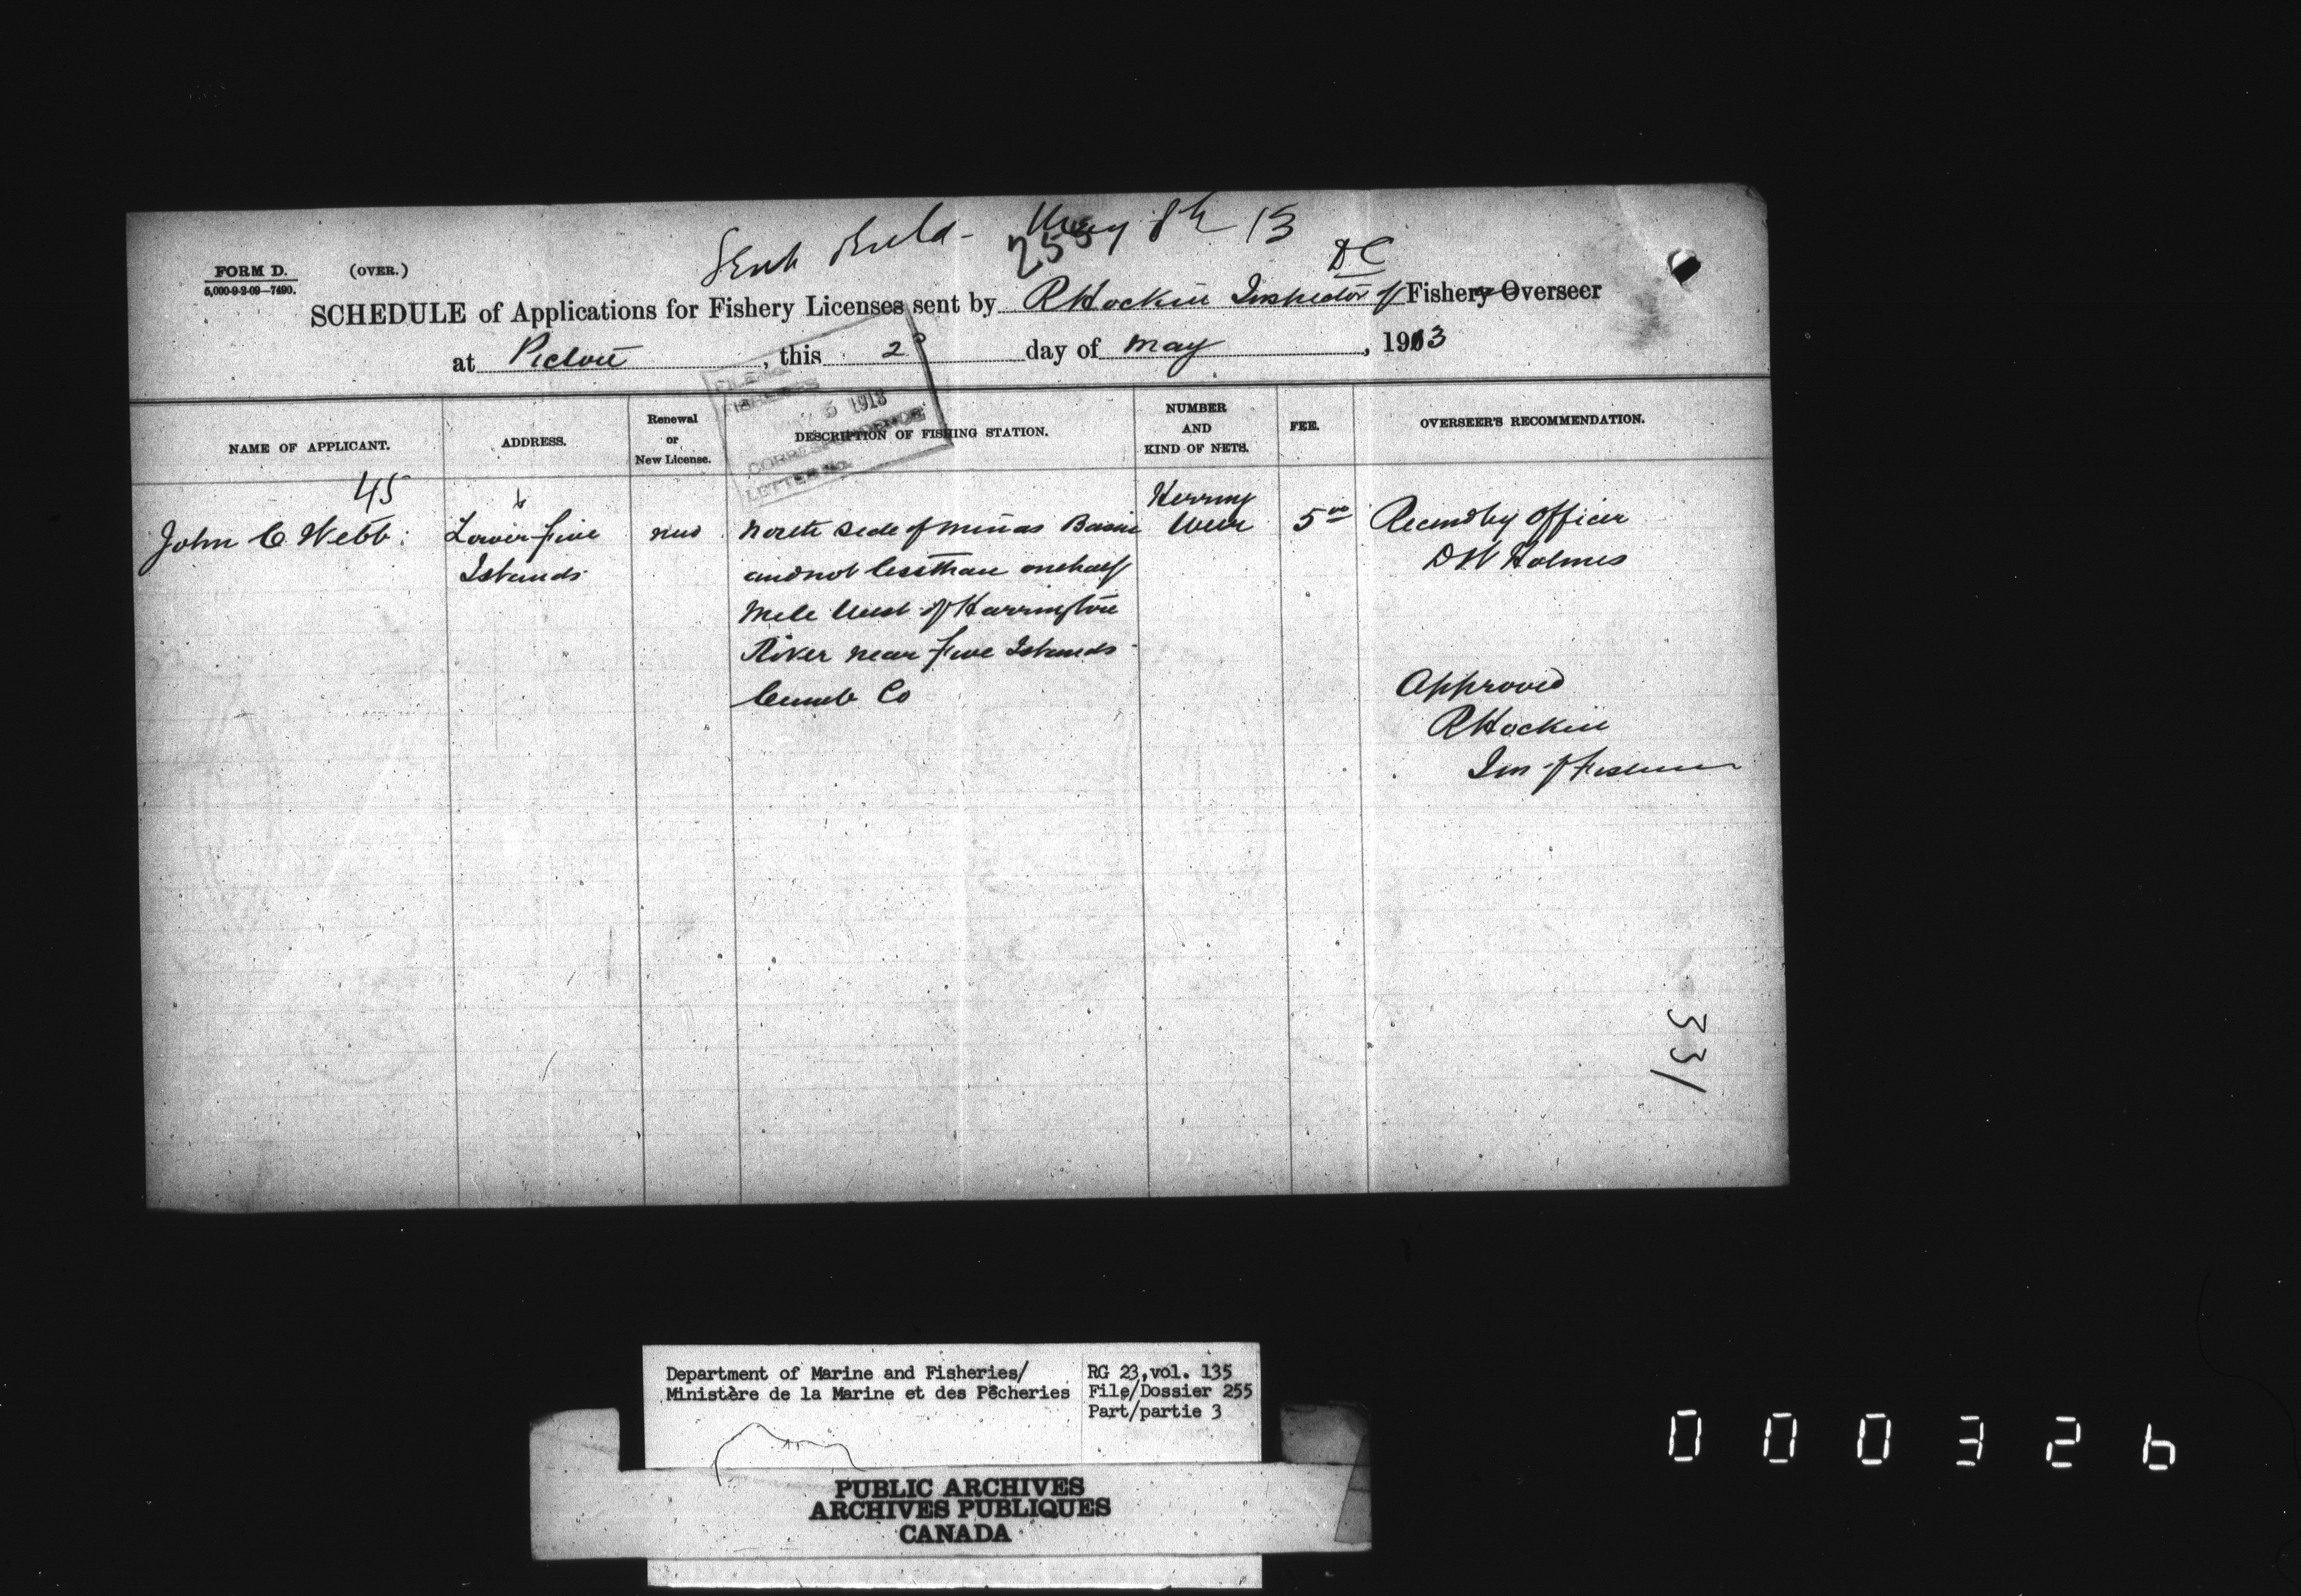 Sent May 8th 13
255
DC
FORM D. (OVER.)
5,000-9-2-09—7490.
SCHEDULE of Applications for Fishery Licenses sent by R Hockin Inspector of Fishery Overseer
at Pictou, this 2 day of May, 1913
FISHERIES
5 1913
CORRESPONDENCE
LETTER No.
NAME OF APPLICANT. ADDRESS. Renewal or New License. DESCRIPTION OF FISHING STATION. NUMBER AND KIND OF NETS. FEE. OVERSEER'S RECOMMENDATION.
45
John C Webb. Lower Five new North side of Minas Basin Herring Weir 5 00 Recmd by Officer
Islands and not less than one half D W Holmes
Mile West of Harrington
River near Five Islands
Cumb Co Approved
R Hockin
Ins of Fisheries
331
Department of Marine and Fisheries/ RG 23,vol. 135
Ministère de la Marine et des Pêcheries File/Dossier 255
Part/partie 3
PUBLIC ARCHIVES
ARCHIVES PUBLIQUES
CANADA
000326